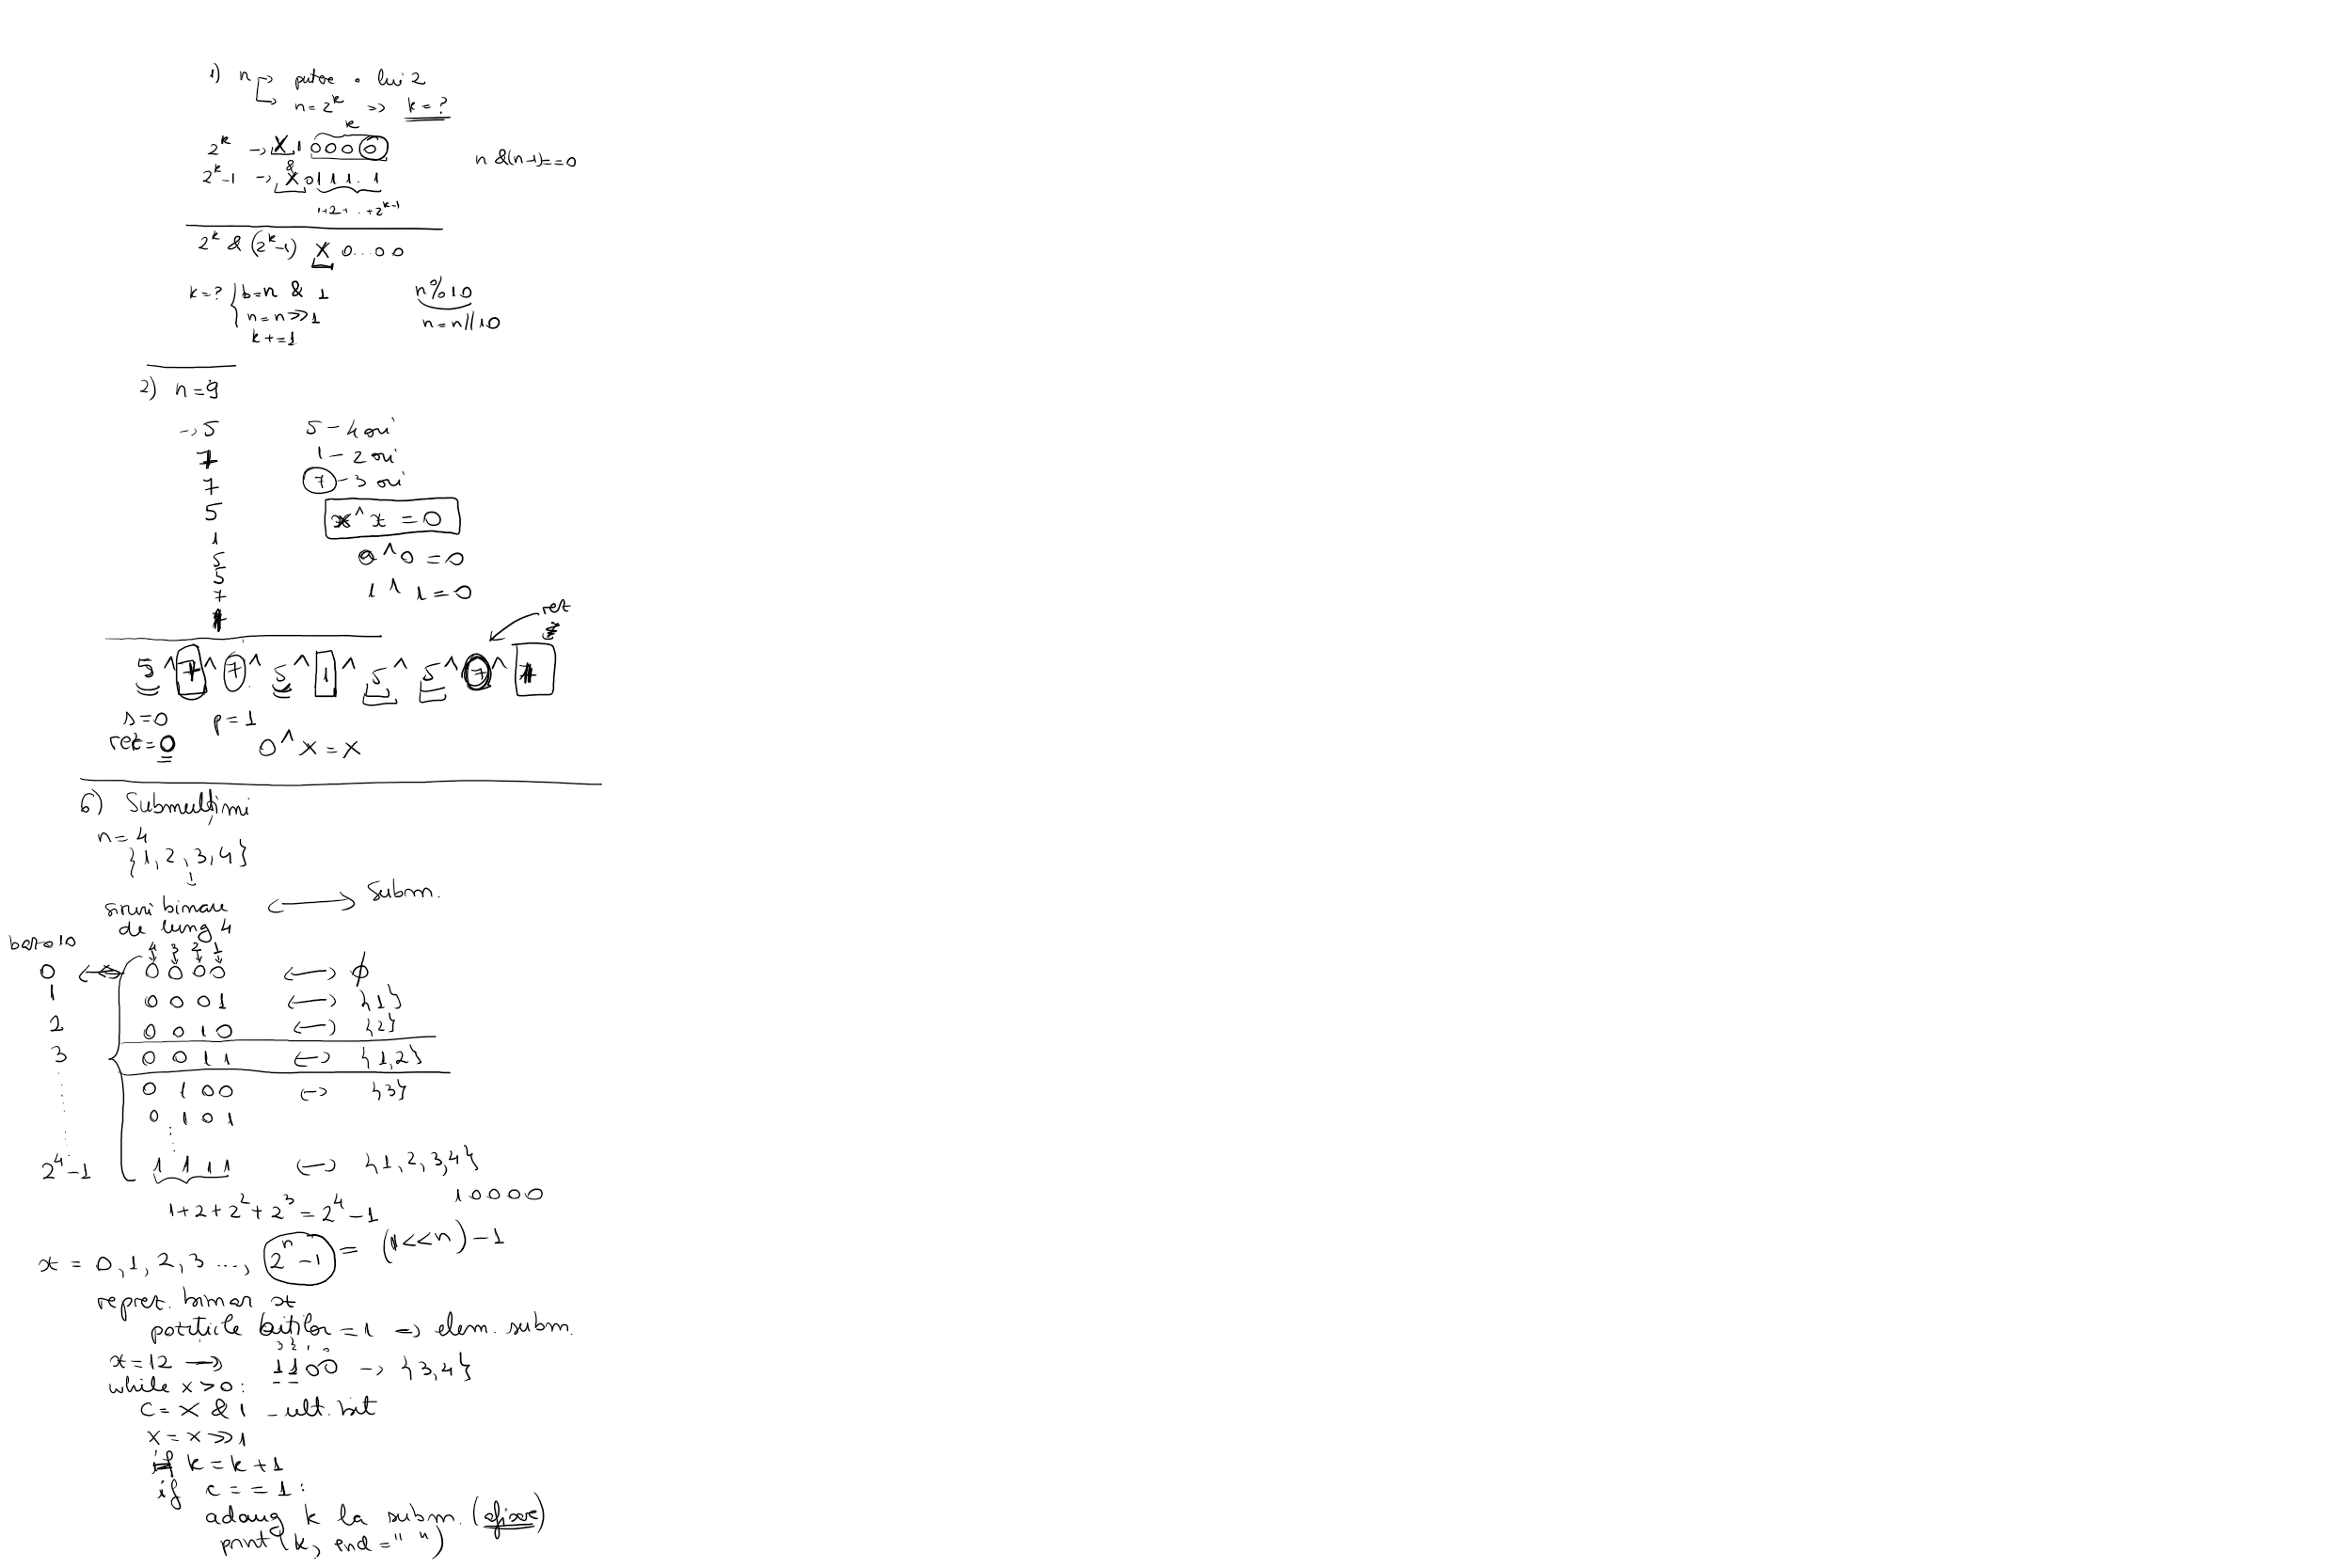 1) n -> putere a lui 2
n = 2^k => k = ?
k
2^k -> X 1 0 0 0 0
n &(n-1)==0
&
2^k-1 -> X 0 1 1 1 . 1
1+2+ .. +2^(k-1)
2^k & (2^k-1) X 0....0 0
k=? { b=n & 1
n%10
n=n>>1
n=n//10
k+=1
2) n=9
-> 5
5 - 4 ori
1 - 2 ori
7
7 - 3 ori
5
x^x = 0
1
5
0^0 = 0
5
7
1 ^ 1 = 0
ret
5 ^ 1 ^ 7 ^ 5 ^ 1 ^ 5 ^ 5 ^ 7 ^
s=0 p=1
ret=0 0^x=x
6) Submulțimi
n=4
{1,2,3,4}
siruri binare <-> Subm.
de lung 4
baza 10
4 3 2 1
0 <-> 0 0 0 0 <-> ϕ
1 0 0 0 1 <-> {1}
2 0 0 1 0 <-> {2}
3 0 0 1 1 <-> {1,2}
0 1 0 0 <-> {3}
0 1 0 1
2^4-1 1 1 1 1 <-> {1,2,3,4}
1 0 0 0 0
1+2+2^2+2^3=2^4-1
x = 0,1,2,3 ..., 2^n-1 = (1<<n)-1
reprez. binar x
pozitiile bitilor = 1 => elem. subm.
x=12 -> 1100 -> {3,4}
while x>0:
c = x & 1 - ult. bit
x = x >> 1
k = k+1
if c == 1:
adaug k la subm. (afisare)
print(k, end=" ")